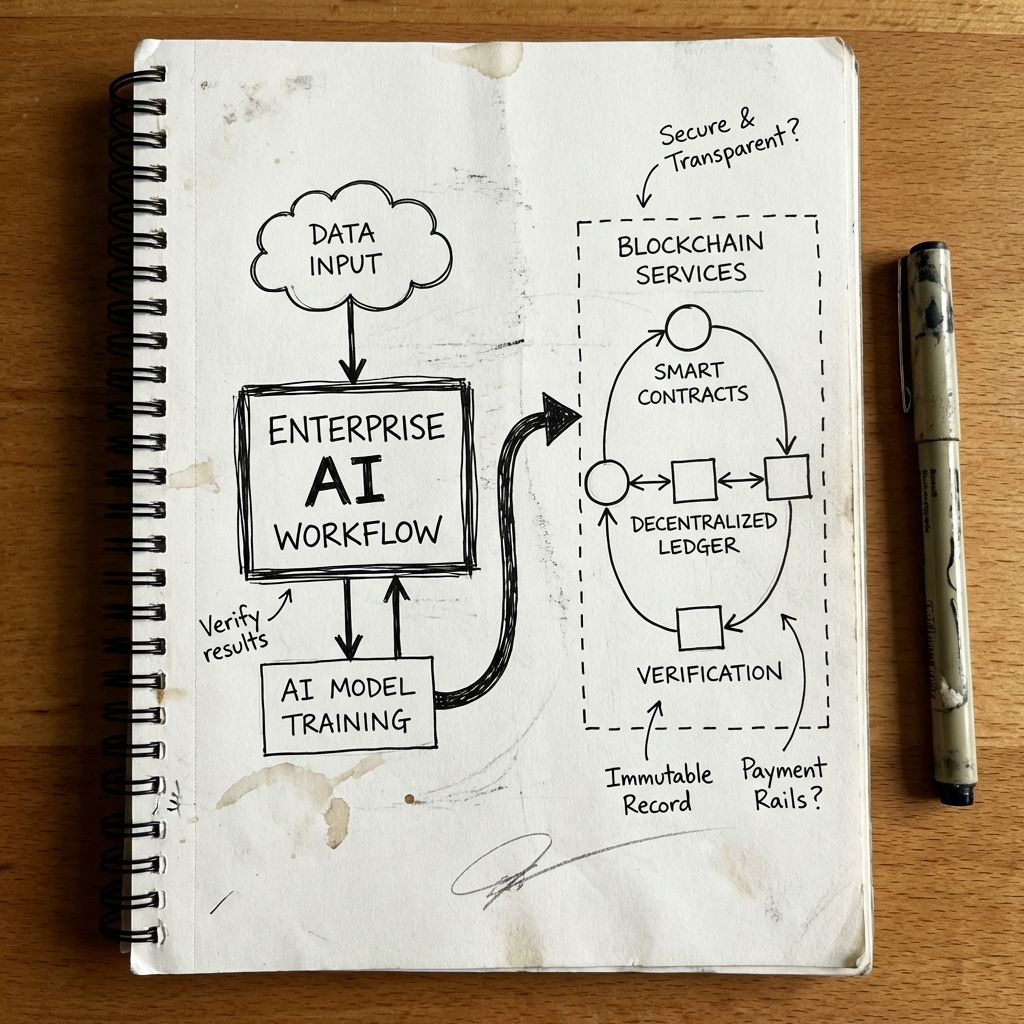 Secure &
Transparent?
DATA
INPUT
BLOCKCHAIN
SERVICES
SMART
CONTRACTS
ENTERPRISE
AI
WORKFLOW
DECENTRALIZED
LEDGER
Verify
results
VERIFICATION
AI MODEL
TRAINING
Immutable
Record
Payment
Rails?